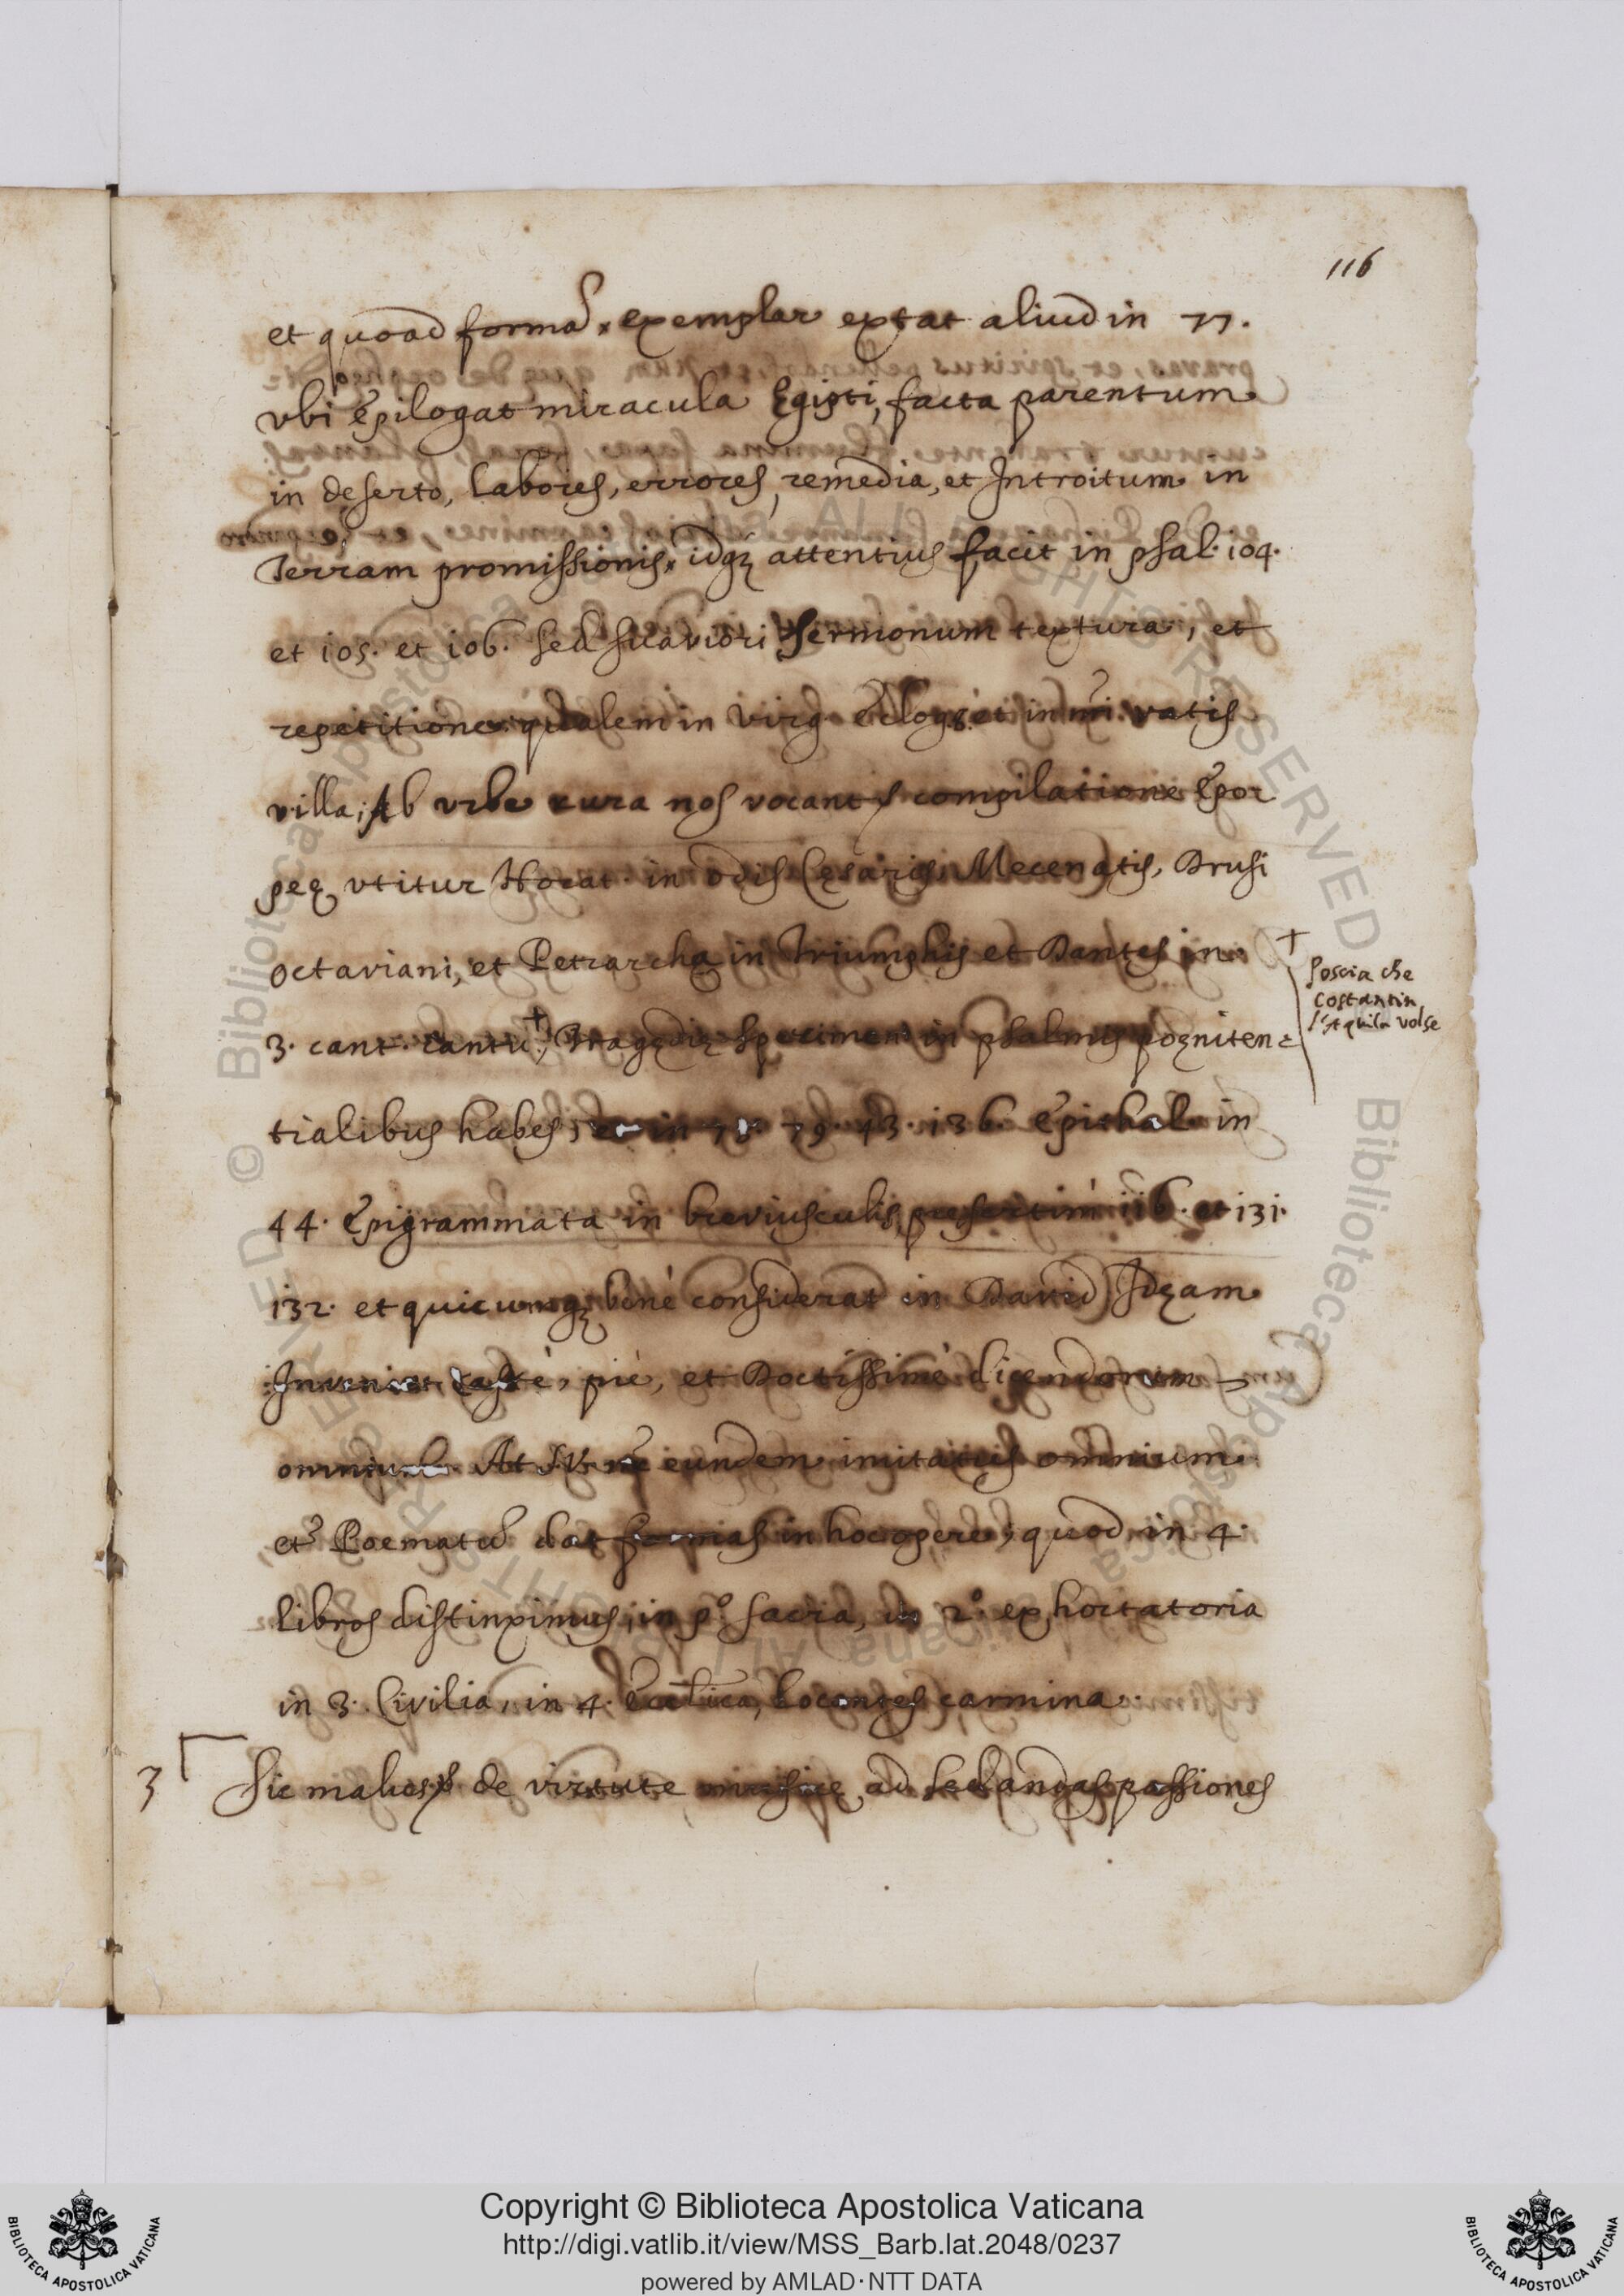 116
et quoad formã, exemplar extat aliud in 77.
vbi epilogat miracula Egipti, facta parentum
in deserto, labores, errores, remedia, et Introitum in
Terram promissionis, idq; attentius facit in psal. 104.
et 105. et 106. sed suaviori sermonum textura, et
repetitione qualem in Virg. et in nri vatis
villa; Ab vrbe rura nos vocant compilatione Epo
peę vtitur Horat. in odis Cęsaris, Mecenatis, Drusi
octaviani, et Petrarcha in Triumphis et Dantes in
+
Poscia che
Costantin
l'Aquila volse
3. cant. cantu + Tragędię specimen in psalmis pogniten=
tialibus habes, et in 79. 43. 136. Epithal. in
44. Epigrammata in breviusculis, presertim 116. et 131.
132. et quicumq; benè considerat in David Idęam
Inveniet castè, piè, et Doctissimè dicendorum
omnium. At eundem imitatus omnium
et Poematũ dat formas in hoc opere, quod in 4.
libros distinximus, in p.º sacra, in 2.º exhortatoria
in 3. Civilia, in 4. docentes carmina.
3 Sic de virtute musicę ad sedandas passiones
Copyright © Biblioteca Apostolica Vaticana
http://digi.vatlib.it/view/MSS_Barb.lat.2048/0237
powered by AMLAD·NTT DATA
BIBLIOTECA APOSTOLICA VATICANA
BIBLIOTECA APOSTOLICA VATICANA